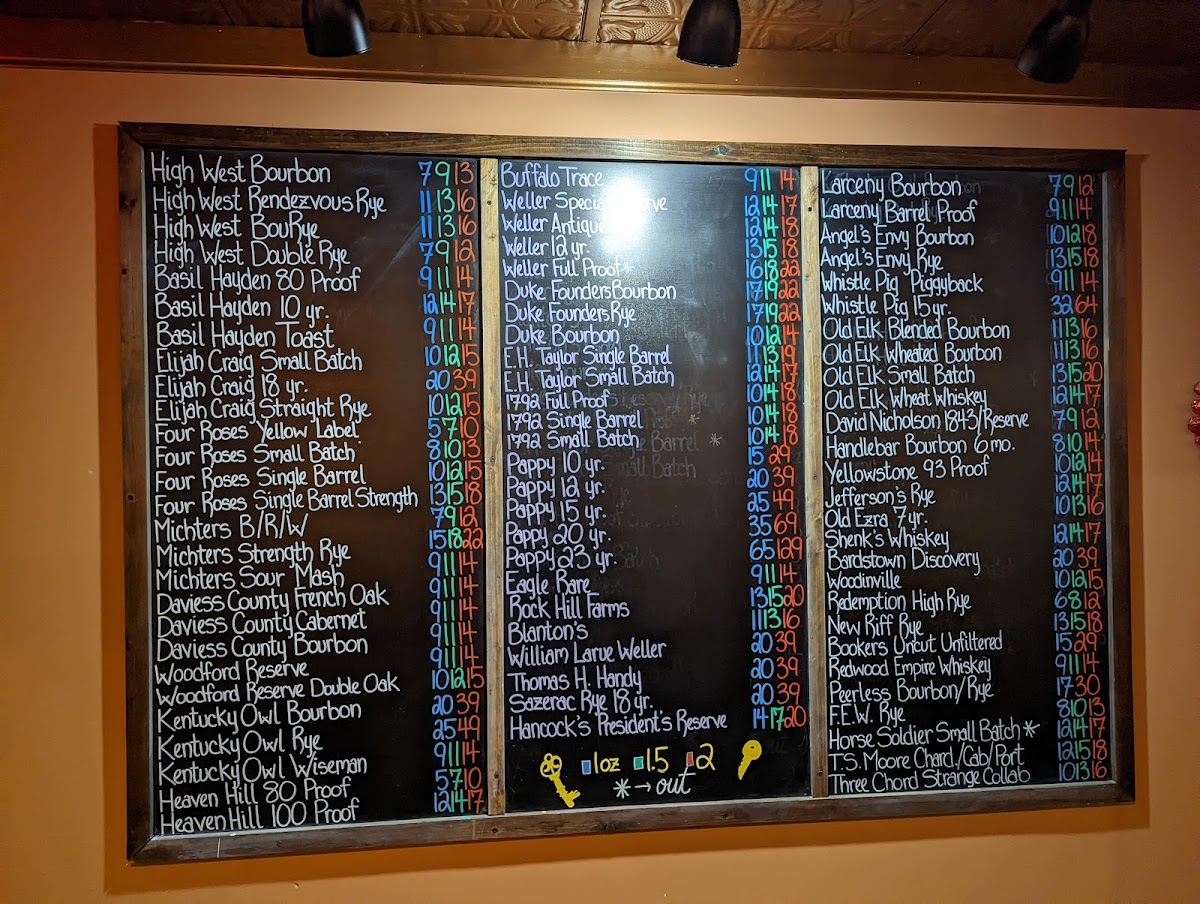 High West Bourbon 7 9 13
High West Rendezvous Rye 11 13 16
High West BouRye 11 13 16
High West Double Rye 7 9 12
Basil Hayden 80 Proof 9 11 14
Basil Hayden 10 yr. 12 14 17
Basil Hayden Toast 9 11 14
Elijah Craig Small Batch 10 12 15
Elijah Craig 18 yr. 20 39
Elijah Craig Straight Rye 10 12 15
Four Roses Yellow Label 5 7 10
Four Roses Small Batch 8 10 13
Four Roses Single Barrel 10 12 15
Four Roses Single Barrel Strength 13 15 18
Michters B/R/W 7 9 12
Michters Strength Rye 15 18 22
Michters Sour Mash 9 11 14
Daviess County French Oak 9 11 14
Daviess County Cabernet 9 11 14
Daviess County Bourbon 9 11 14
Woodford Reserve 9 11 14
Woodford Reserve Double Oak 10 12 15
Kentucky Owl Bourbon 20 39
Kentucky Owl Rye 25 49
Kentucky Owl Wiseman 9 11 14
Heaven Hill 80 Proof 5 7 10
Heaven Hill 100 Proof 12 14 17
Buffalo Trace 9 11 14
Weller Special Reserve 12 14 17
Weller Antique 12 14 18
Weller 12 yr. 13 15 18
Weller Full Proof* 16 18 22
Duke Founders Bourbon 17 19 22
Duke Founders Rye 17 19 22
Duke Bourbon 10 12 14
E.H. Taylor Single Barrel 11 13 19
E.H. Taylor Small Batch 12 14 17
1792 Full Proof 10 14 18
1792 Single Barrel 10 14 18
1792 Small Batch 10 14 18
Pappy 10 yr. 15 29
Pappy 12 yr. 20 39
Pappy 15 yr. 25 49
Pappy 20 yr. 35 69
Pappy 23 yr. 65 129
Eagle Rare 9 11 14
Rock Hill Farms 13 15 20
Blanton's 11 13 16
William Larue Weller 20 39
Thomas H. Handy 20 39
Sazerac Rye 18 yr. 20 39
Hancock's President's Reserve 14 17 20
1oz 1.5 2
* → out
Larceny Bourbon 7 9 12
Larceny Barrel Proof 9 11 14
Angel's Envy Bourbon 10 12 18
Angel's Envy Rye 13 15 18
Whistle Pig Piggyback 9 11 14
Whistle Pig 15 yr. 32 64
Old Elk Blended Bourbon 11 13 16
Old Elk Wheated Bourbon 11 13 16
Old Elk Small Batch 13 15 20
Old Elk Wheat Whiskey 12 14 17
David Nicholson 1843/Reserve 7 9 12
Handlebar Bourbon 6 mo. 8 10 14
Yellowstone 93 Proof 10 12 14
Jefferson's Rye 12 14 17
Old Ezra 7 yr. 10 13 16
Shenk's Whiskey 12 14 17
Bardstown Discovery 20 39
Woodinville 10 12 15
Redemption High Rye 6 8 12
New Riff Rye 13 15 18
Bookers Uncut Unfiltered 15 29
Redwood Empire Whiskey 9 11 14
Peerless Bourbon/Rye 17 30
F.E.W. Rye 8 10 13
Horse Soldier Small Batch * 12 14 17
T.S. Moore Chard./Cab/Port 12 15 18
Three Chord Strange Collab 10 13 16